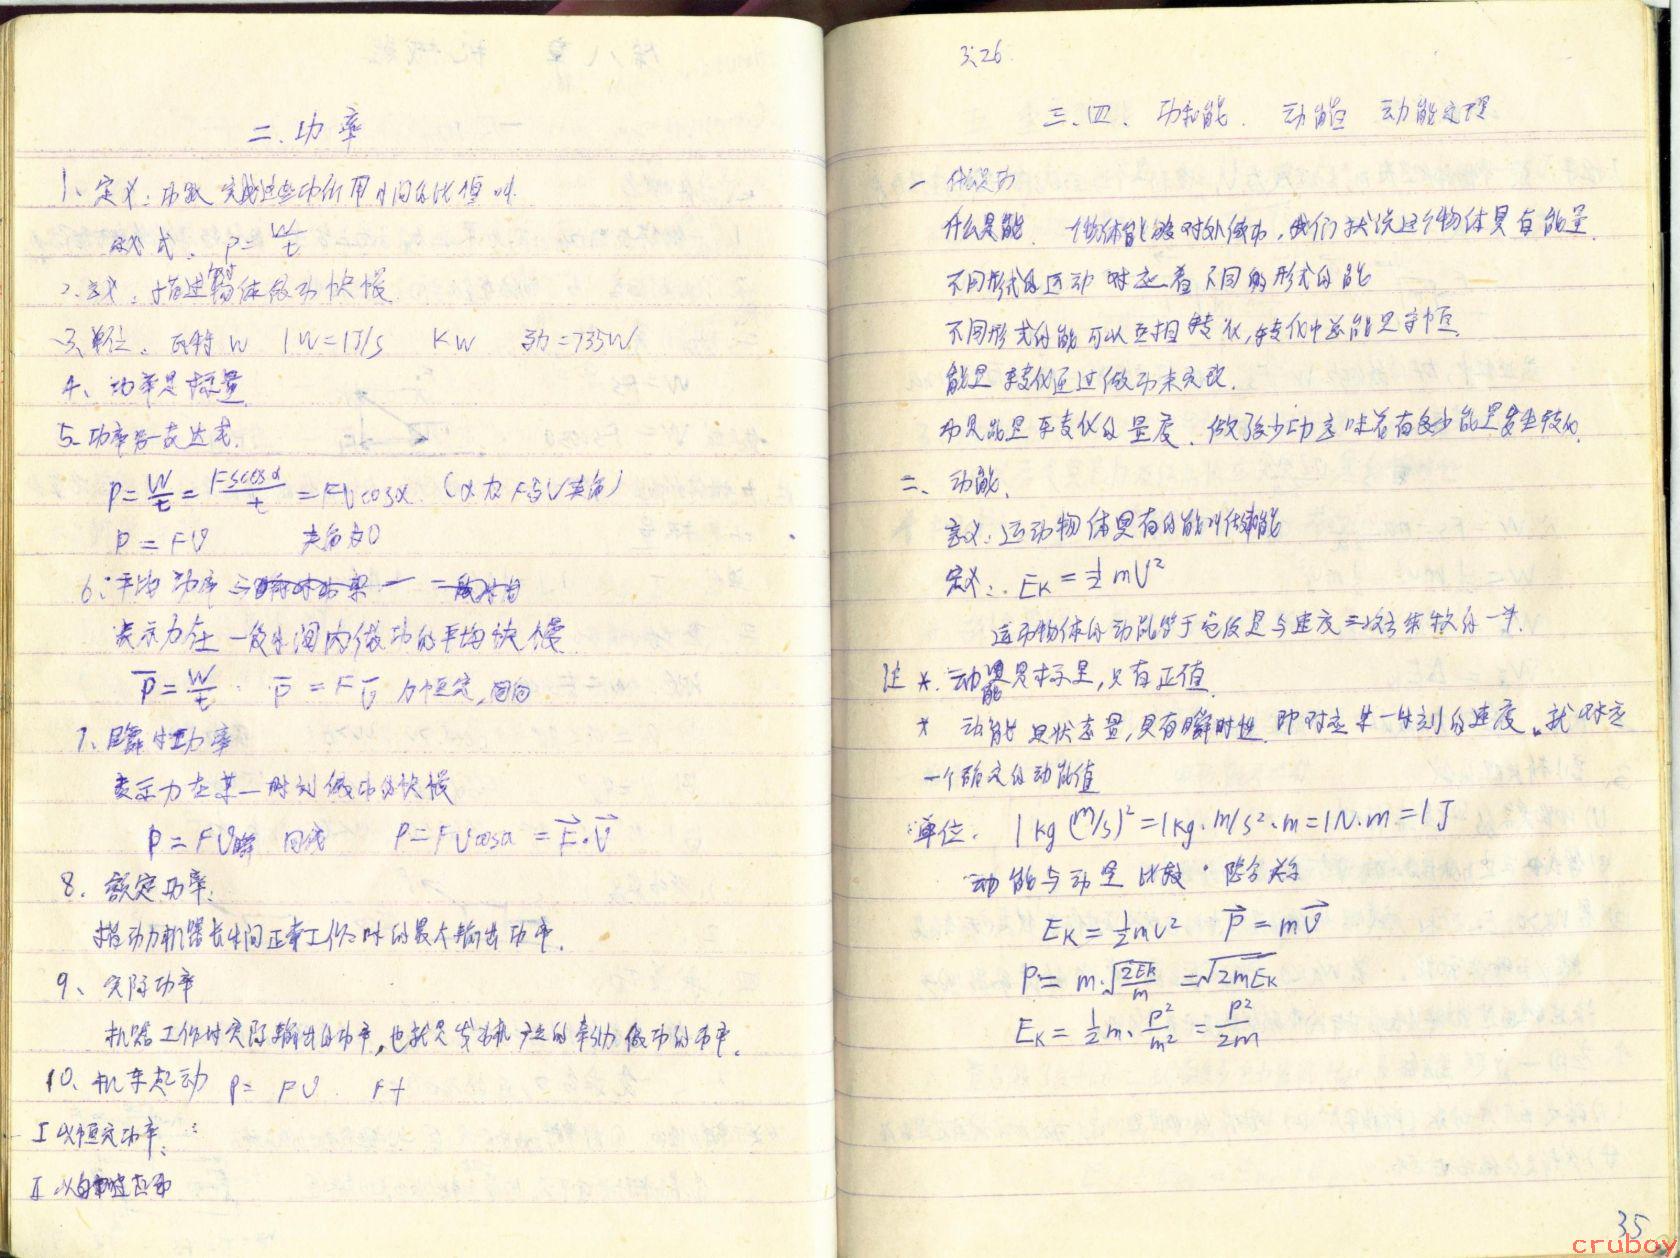 二、功率
1、定义：功跟完成这些功所用时间的比值叫
定义式：P=W/t
2、意义：描述物体做功快慢
3、单位：瓦特 W 1W=1J/s KW =735W
4、功率是标量
5、功率另表达式
P=W/t=Fscosα/t=FVcosα (α为F与V夹角)
P=FV 夹角为0
6、平均功率
表示力在一段时间内做功的平均快慢
P̄=W/t . P̄=FV̄ 力恒定，同向
7、瞬时功率
表示力在某一时刻做功的快慢
P=FV瞬 同线 P=FVcosα=F⃗·V⃗
8、额定功率：
指动力机器长时间正常工作时的最大输出功率.
9、实际功率
机器工作时实际输出的功率，也就是发动机产生的牵引力做功的功率.
10、机车起动 P=FV. F
I 以恒定功率：
II 以
3.26.
三、四、功和能. 动能 动能定理
一
什么是能. 一个物体能够对外做功，我们就说这个物体具有能量.
不同形式的运动对应着不同的形式的能
不同形式的能可以互相转化，转化中总能量守恒.
能量转变化通过做功来实现.
功是能量转变化的量度. 做了多少功意味着有多少能量发生转化.
二、动能.
意义：运动物体具有的能叫做动能
定义：EK=½mV²
运动物体的动能等于它质量与速度二次方乘积的一半.
注 *. 动能是标量，只有正值.
* 动能是状态量，具有瞬时性. 即对应某一时刻的速度，就对应
一个确定的动能值
单位. 1kg(m/s)²=1kg·m/s²·m=1N·m=1J
动能与动量比较
EK=½mv² P⃗=mV⃗
P=m·√(2EK/m)=√(2mEK)
EK=½m·P²/m²=P²/2m
35
cruboy